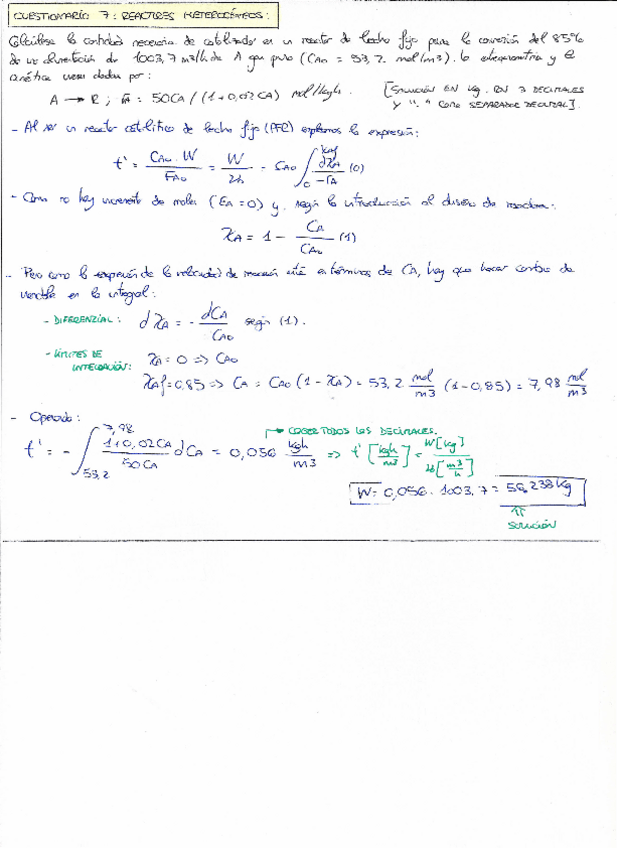 CUESTIONARIO 7: REACTORES HETEROGÉNEOS:
Calcúlese la cantidad necesaria de catalizador en un reactor de lecho fijo para la conversión del 85%
de una alimentación de 1003,7 m3/h de A gas puro (CAo = 53,2 mol/m3). La estequiometría y la
cinética vienen dadas por:
A → R ; rA = 50CA / (1+0,02CA) mol/kgh. [SOLUCIÓN EN kg. CON 3 DECIMALES
Y "," COMO SEPARADOR DECIMAL].
- Al ser un reactor catalítico de lecho fijo (PFC) empleamos la expresión:
t' = CAo · W / FAo = W / = CAo ∫ 0 XAf dXA / -rA (0)
- Como no hay incremento de moles (EA = 0) y, según la introducción al diseño de reactores:
XA = 1 - CA / CAo (1)
- Pero como la expresión de la velocidad de reacción está en términos de CA, hay que hacer cambio de
variable en la integral:
- DIFERENZIAL: dXA = - dCA / CAo según (1).
- LÍMITES DE INTEGRACIÓN: XA = 0 => CAo
XAf = 0,85 => CA = CAo (1 - XA) = 53,2 mol/m3 (1-0,85) = 7,98 mol/m3
- Operando:
COGER TODOS LOS DECIMALES.
t' = - ∫ 53,2 7,98 1+0,02CA / 50CA dCA = 0,056 kgh/m3 => t' [kgh/m3] = W[kg] / [m3/h]
W = 0,056 · 1003,7 = 56,238 kg
SOLUCIÓN